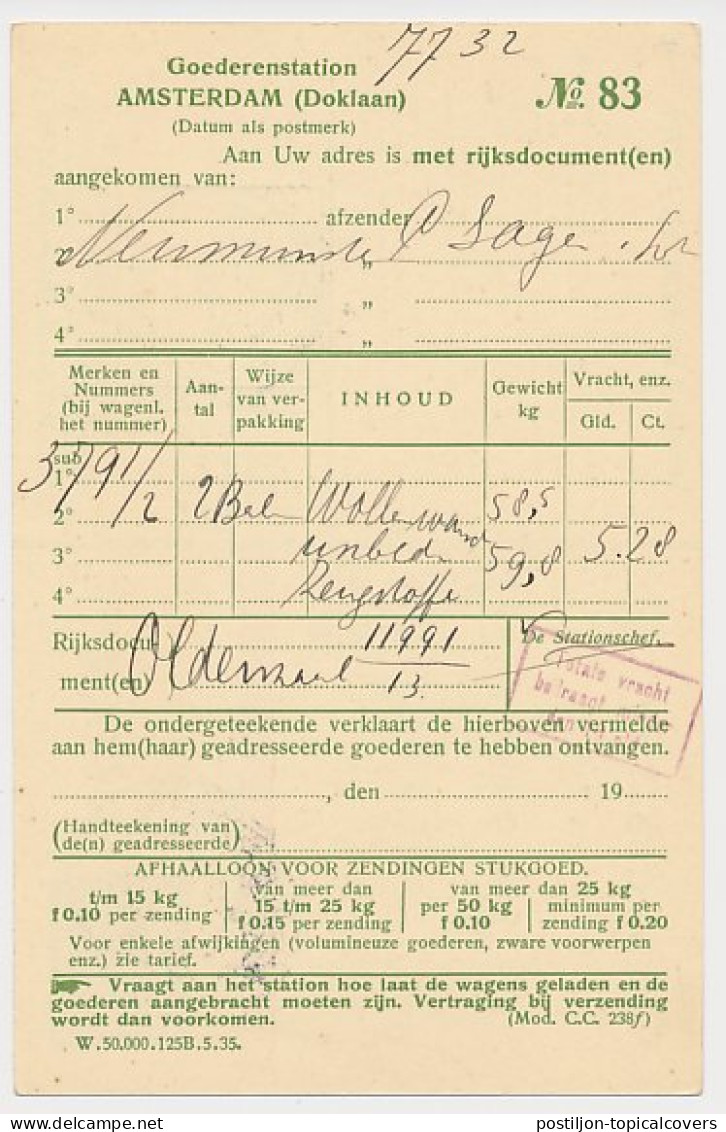 7732
Goederenstation
AMSTERDAM (Doklaan)
No. 83
(Datum als postmerk)
Aan Uw adres is met rijksdocument(en)
aangekomen van:
1° afzender
2° Neumunster „ Lage
3° „
4° „
Merken en Nummers (bij wagenl. het nummer)
Aan-tal
Wijze van ver-pakking
INHOUD
Gewicht kg
Vracht, enz.
Gld. Ct.
sub
1°
3791/2
2° 2 Balen Wollen 58,5
3° unbedr 59,8 5.28
4°
Rijksdocu- 11991
ment(en) Oldenzaal 13.
De Stationschef.
Totale vracht
De ondergeteekende verklaart de hierboven vermelde
aan hem(haar) geadresseerde goederen te hebben ontvangen.
, den 19
(Handteekening van
de(n) geadresseerde)
AFHAALLOON VOOR ZENDINGEN STUKGOED.
t/m 15 kg
f 0.10 per zending
van meer dan
15 t/m 25 kg
f 0.15 per zending
van meer dan 25 kg
per 50 kg
f 0.10
minimum per
zending f 0.20
Voor enkele afwijkingen (volumineuze goederen, zware voorwerpen
enz.) zie tarief.
Vraagt aan het station hoe laat de wagens geladen en de
goederen aangebracht moeten zijn. Vertraging bij verzending
wordt dan voorkomen. (Mod. C.C. 238f)
W.50.000.125B.5.35.
postiljon-topicalcovers